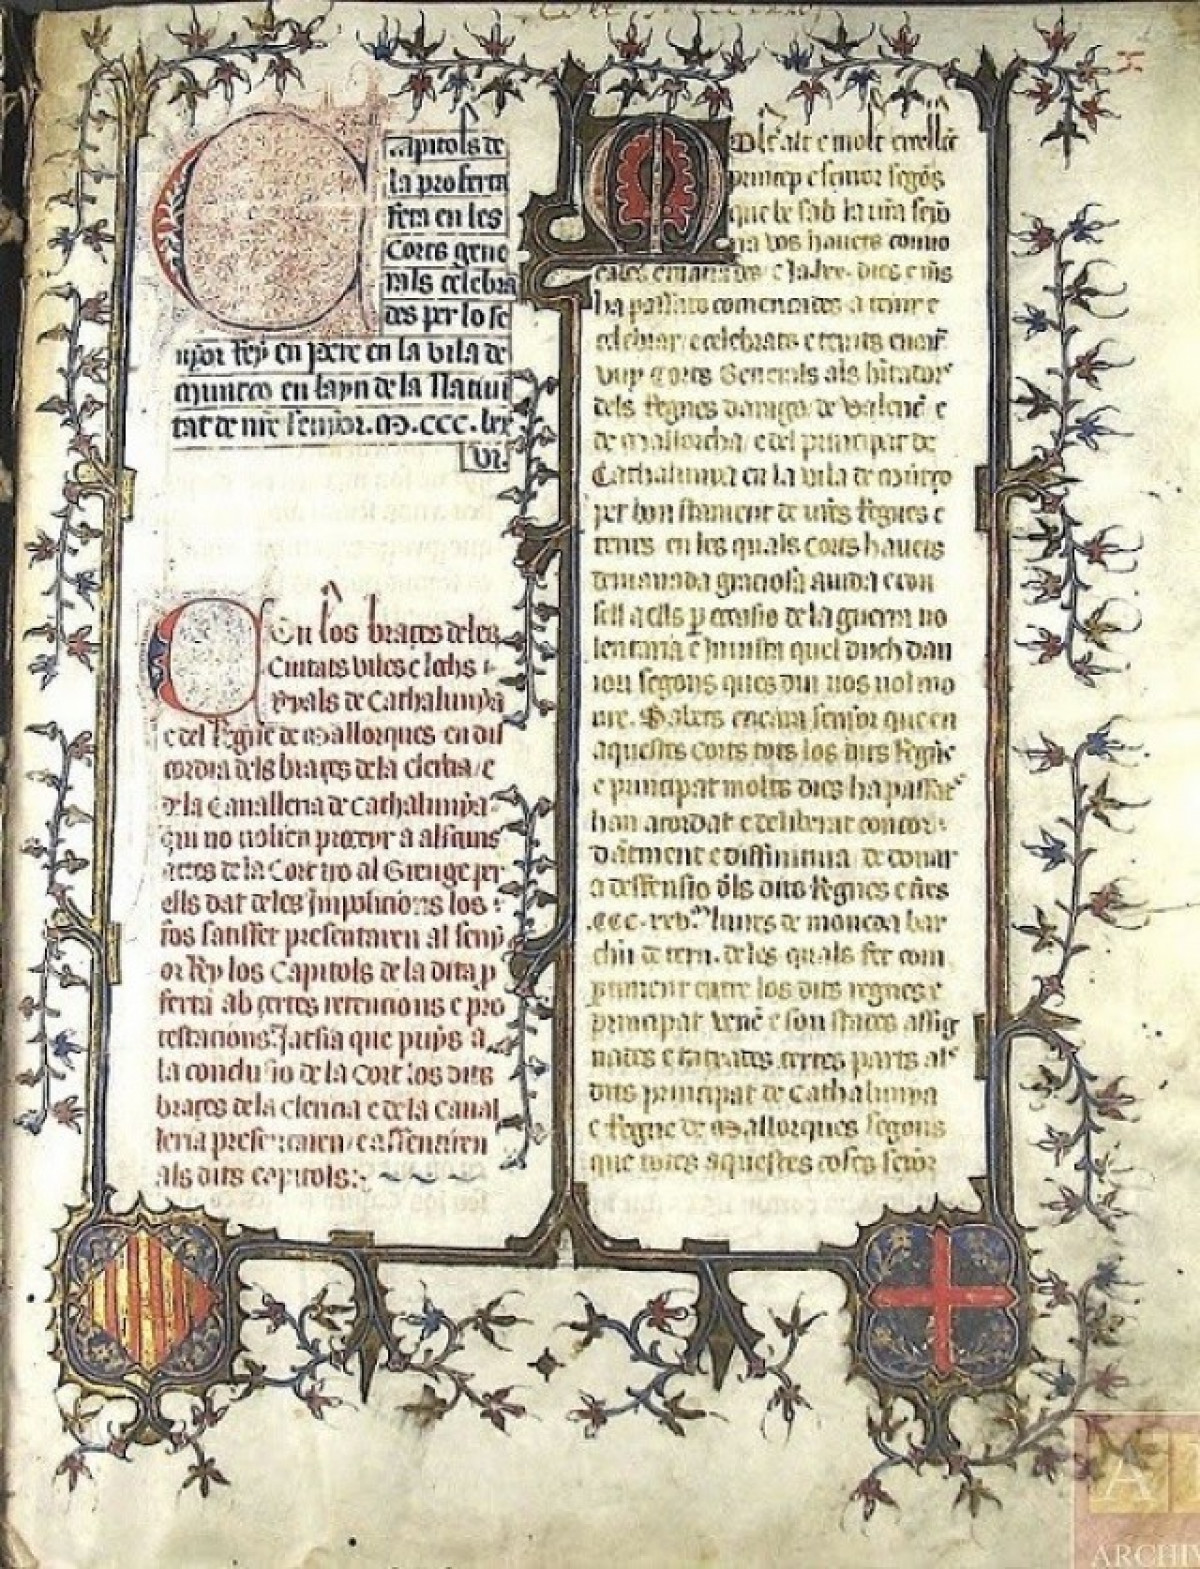 Capitols de
la proferta
feta en les
Corts gene
rals celebra
des per lo se
nyor Rey en Pere en la vila de
Muntço en layn de la Nativi
tat de nre senyor. M. CCC. lxx
vi.
On los braçes de les
Ciutats viles e lochs
Reyals de Cathalunya
e del Regne de Mallorques en dis
cordia dels braçes de la clecia e
de la Cavalleria de Cathalunya
qui no volien proceyr a alscuns
actes de la Cort tro al Greuge per
ells dat de les Imposicions los
fos satisfet presentaren al seny
or Rey los Capitols de la dita p
ferta ab certes retencions e pro
testacions. Jatsia que puys a
la conclusio de la Cort los dits
braçes de la clecia e de la Cavall
leria presentaren e assentiren
als dits capitols:
Molt alt e molt excellēt
princep e senyor segōs
que be sab la vra senyo
ria vos havets convo
cades e manades e Ja lxx. dies e mes
ha passats començades a tenir e
celebrar e celebrats e tenits encar
vuy Corts Generals als habitadors
dels Regnes Darago de Valenē e
de Mallorcha e del principat de
Cathalunya en la vila de Mūtço
per bon stament de vres Regnes e
terres en les quals corts havets
demanada graciosa aiuda e con
sell a ells p occasio de la guerra vo
lentaria e Iniusta quel duch dan
iou segons ques diu vos vol mo
ure. Sabets encara senyor que en
aquestes corts tots los dits Regnes
e principat molts dies ha passats
han acordat e deliberat concor
dātment e diffinitiva de donar
a deffensio dls dits Regnes e tres
lliures de moneda bar
chn de tern. de les quals fer com
partiment entre los dits regnes e
principat vench e son stades assig
nades e tatxades certes parts als
dits principat de Cathalunya
e Regne de Mallorques segons
que totes aquestes coses senyor
ARCHIV